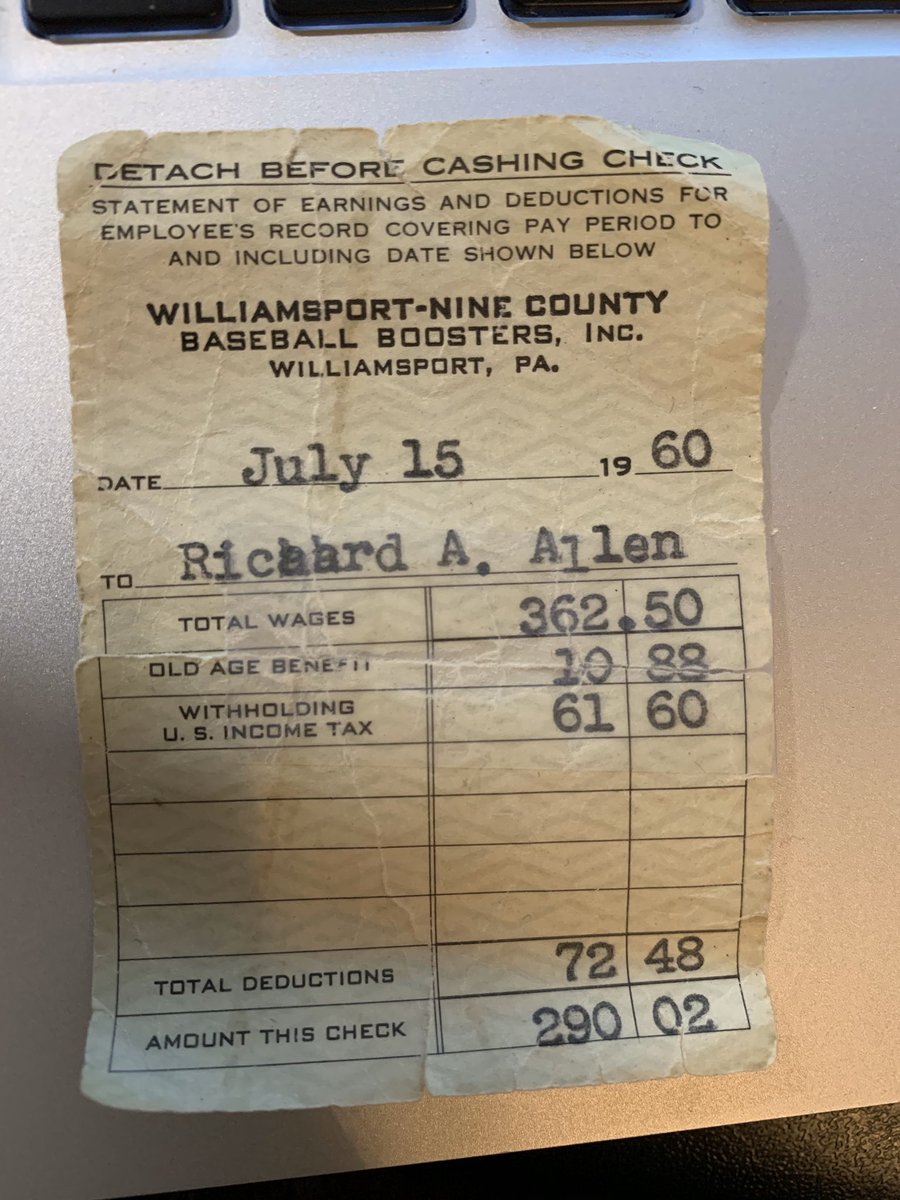 DETACH BEFORE CASHING CHECK
STATEMENT OF EARNINGS AND DEDUCTIONS FOR
EMPLOYEE'S RECORD COVERING PAY PERIOD TO
AND INCLUDING DATE SHOWN BELOW
WILLIAMSPORT-NINE COUNTY
BASEBALL BOOSTERS, INC.
WILLIAMSPORT, PA.
DATE July 15 19 60
TO Richard A. Allen
TOTAL WAGES 362.50
OLD AGE BENEFIT 10 88
WITHHOLDING
U. S. INCOME TAX 61 60
TOTAL DEDUCTIONS 72 48
AMOUNT THIS CHECK 290 02